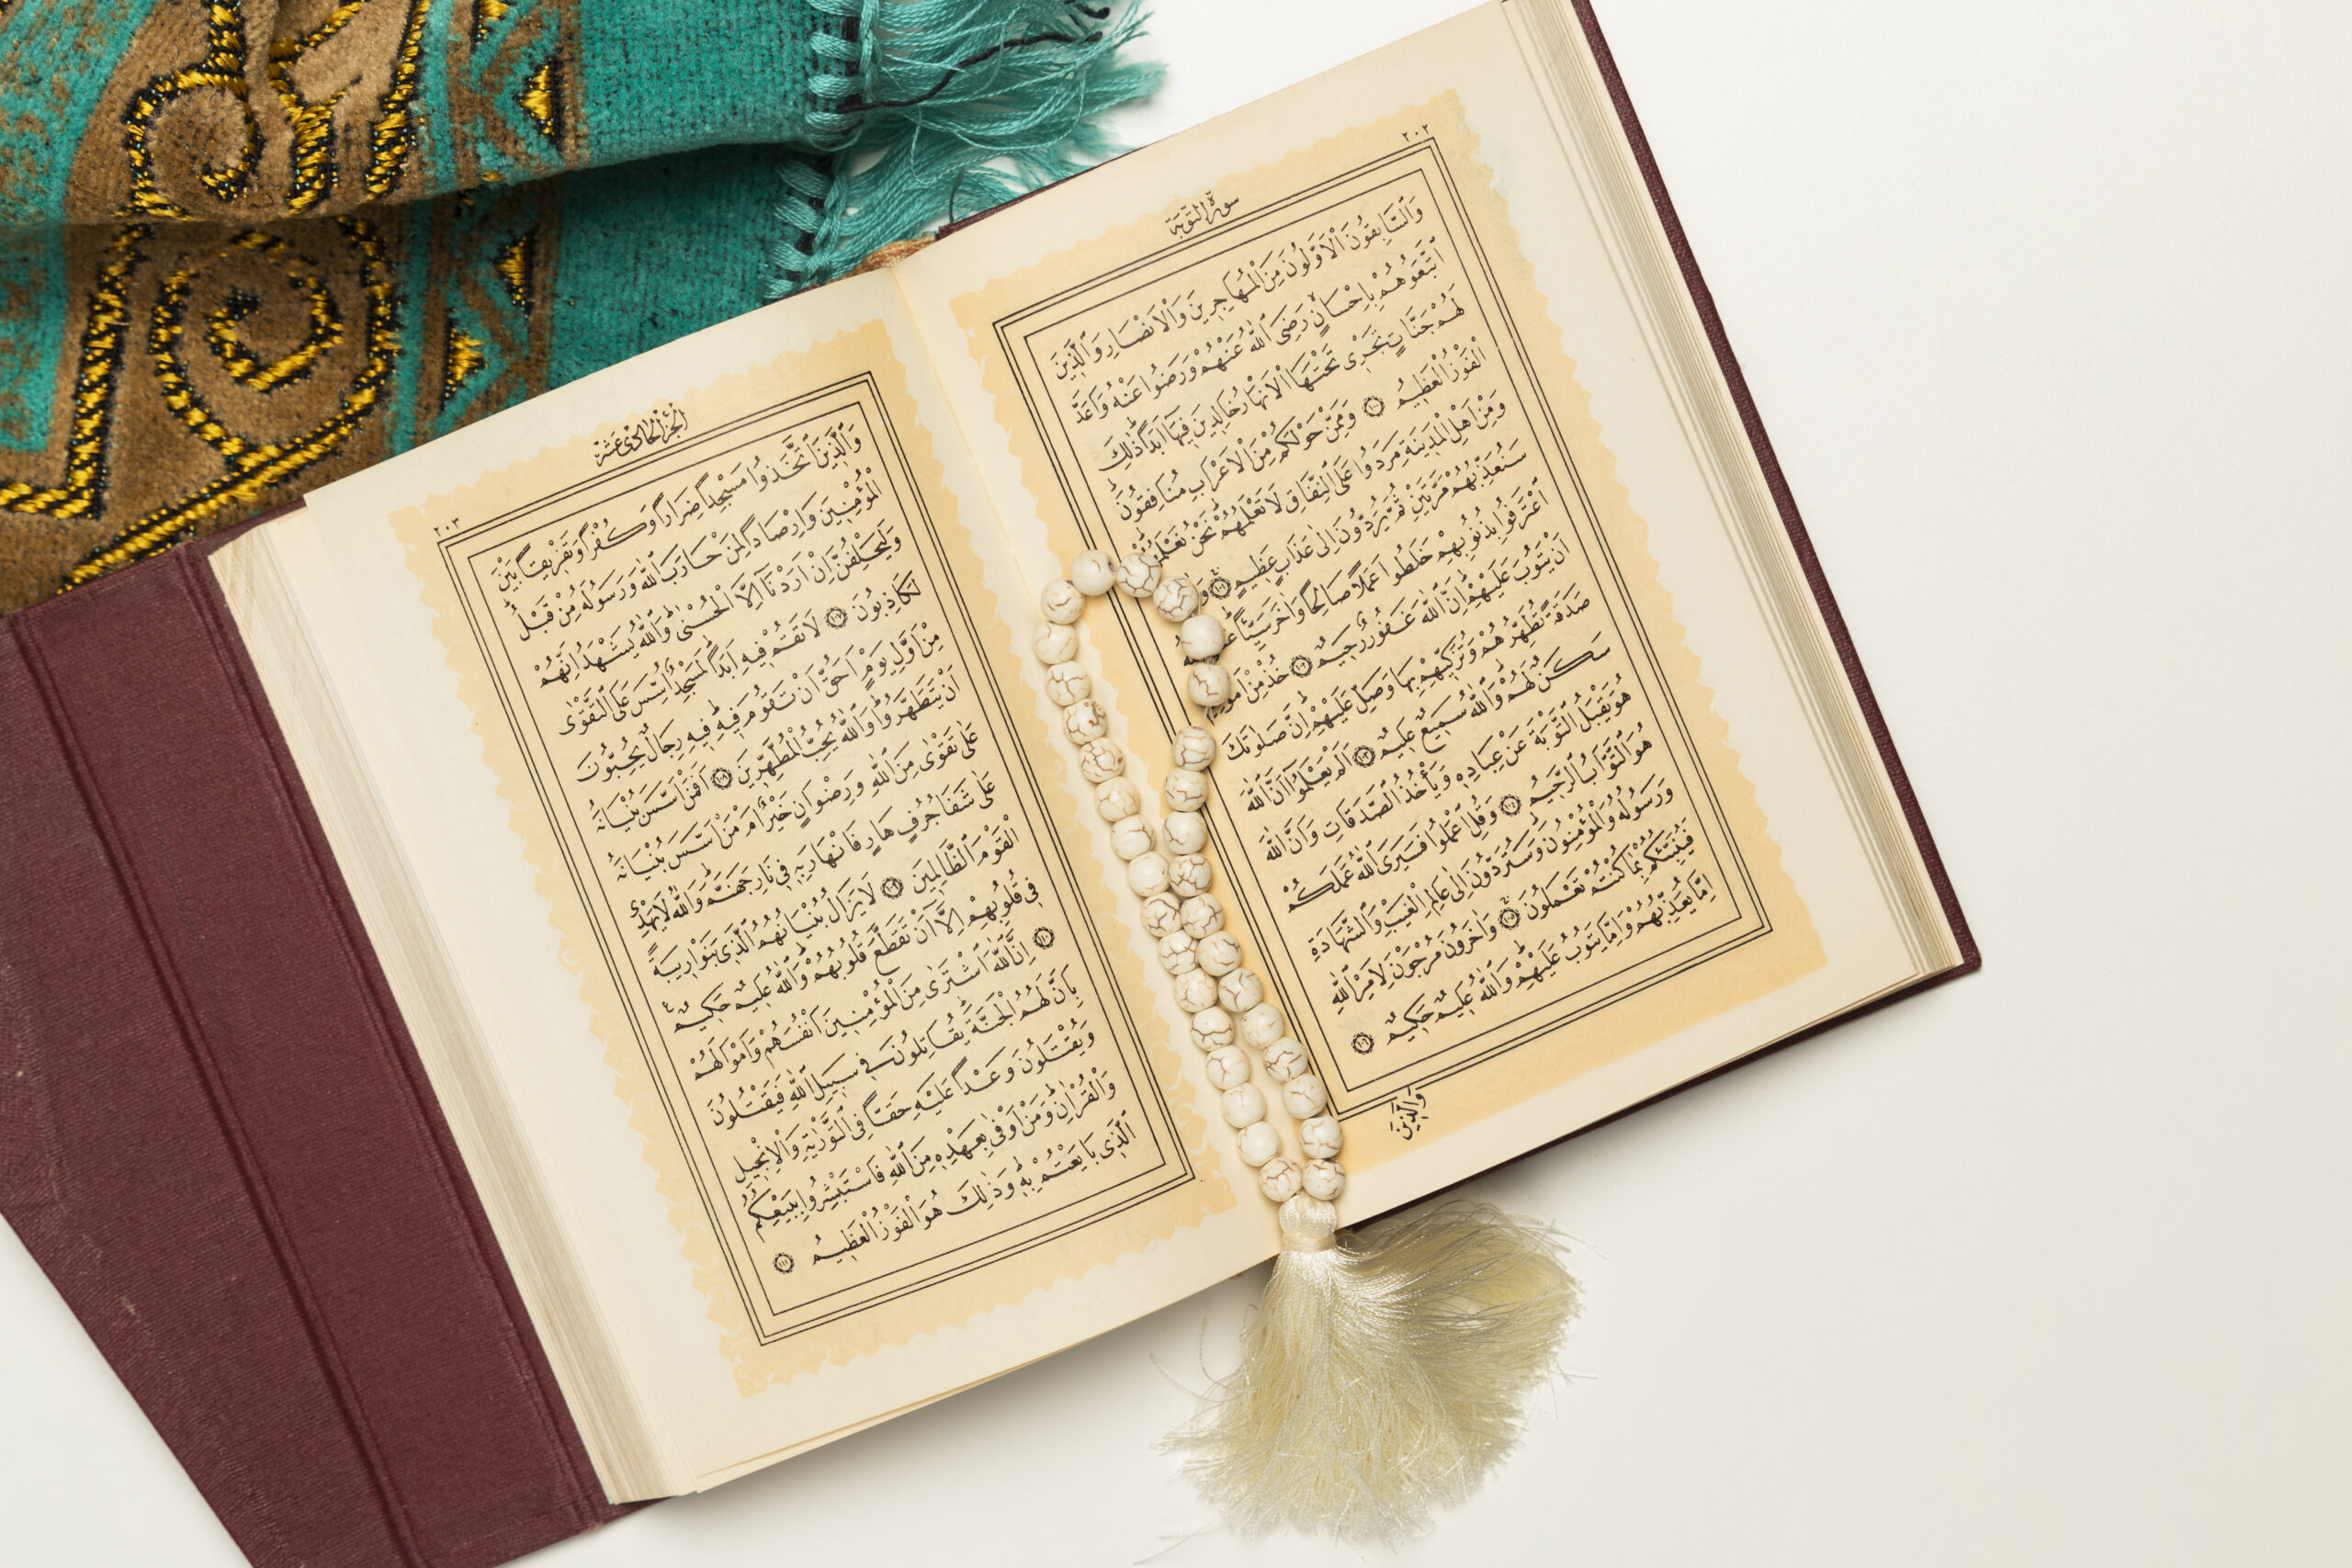 ٢٠٢
سورة التوبة
وَالسَّابِقُونَ الْاَوَّلُونَ مِنَ الْمُهَاجِرِينَ وَالْاَنْصَارِ وَالَّذِينَ
اتَّبَعُوهُمْ بِاِحْسَانٍ رَضِىَ اللّٰهُ عَنْهُمْ وَرَضُوا عَنْهُ وَاَعَدَّ
لَهُمْ جَنَّاتٍ تَجْرِى تَحْتَهَا الْاَنْهَارُ خَالِدِينَ فِيهَا اَبَدًا ذٰلِكَ
الْفَوْزُ الْعَظِيمُ ١٠٠ وَمِمَّنْ حَوْلَكُمْ مِنَ الْاَعْرَابِ مُنَافِقُونَ
وَمِنْ اَهْلِ الْمَدِينَةِ مَرَدُوا عَلَى النِّفَاقِ لَا تَعْلَمُهُمْ نَحْنُ نَعْلَمُهُمْ
سَنُعَذِّبُهُمْ مَرَّتَيْنِ ثُمَّ يُرَدُّونَ اِلٰى عَذَابٍ عَظِيمٍ ١٠١
اعْتَرَفُوا بِذُنُوبِهِمْ خَلَطُوا عَمَلًا صَالِحًا وَاٰخَرَ سَيِّئًا
اَنْ يَتُوبَ عَلَيْهِمْ اِنَّ اللّٰهَ غَفُورٌ رَحِيمٌ ١٠٢ خُذْ مِنْ اَمْوَالِهِمْ
صَدَقَةً تُطَهِّرُهُمْ وَتُزَكِّيهِمْ بِهَا وَصَلِّ عَلَيْهِمْ اِنَّ صَلٰوتَكَ
سَكَنٌ لَهُمْ وَاللّٰهُ سَمِيعٌ عَلِيمٌ ١٠٣ اَلَمْ يَعْلَمُوا اَنَّ اللّٰهَ
هُوَ يَقْبَلُ التَّوْبَةَ عَنْ عِبَادِهِ وَيَأْخُذُ الصَّدَقَاتِ وَاَنَّ اللّٰهَ
هُوَ التَّوَّابُ الرَّحِيمُ ١٠٤ وَقُلِ اعْمَلُوا فَسَيَرَى اللّٰهُ عَمَلَكُمْ
وَرَسُولُهُ وَالْمُؤْمِنُونَ وَسَتُرَدُّونَ اِلٰى عَالِمِ الْغَيْبِ وَالشَّهَادَةِ
فَيُنَبِّئُكُمْ بِمَا كُنْتُمْ تَعْمَلُونَ ١٠٥ وَاٰخَرُونَ مُرْجَوْنَ لِاَمْرِ اللّٰهِ
اِمَّا يُعَذِّبُهُمْ وَاِمَّا يَتُوبُ عَلَيْهِمْ وَاللّٰهُ عَلِيمٌ حَكِيمٌ ١٠٦
وَالَّذِينَ
الجزء الحادى عشر
٢٠٣
وَالَّذِينَ اتَّخَذُوا مَسْجِدًا ضِرَارًا وَكُفْرًا وَتَفْرِيقًا بَيْنَ
الْمُؤْمِنِينَ وَاِرْصَادًا لِمَنْ حَارَبَ اللّٰهَ وَرَسُولَهُ مِنْ قَبْلُ
وَلَيَحْلِفُنَّ اِنْ اَرَدْنَا اِلَّا الْحُسْنٰى وَاللّٰهُ يَشْهَدُ اِنَّهُمْ
لَكَاذِبُونَ ١٠٧ لَا تَقُمْ فِيهِ اَبَدًا لَمَسْجِدٌ اُسِّسَ عَلَى التَّقْوٰى
مِنْ اَوَّلِ يَوْمٍ اَحَقُّ اَنْ تَقُومَ فِيهِ فِيهِ رِجَالٌ يُحِبُّونَ
اَنْ يَتَطَهَّرُوا وَاللّٰهُ يُحِبُّ الْمُطَّهِّرِينَ ١٠٨ اَفَمَنْ اَسَّسَ بُنْيَانَهُ
عَلٰى تَقْوٰى مِنَ اللّٰهِ وَرِضْوَانٍ خَيْرٌ اَمْ مَنْ اَسَّسَ بُنْيَانَهُ
عَلٰى شَفَا جُرُفٍ هَارٍ فَانْهَارَ بِهِ فِى نَارِ جَهَنَّمَ وَاللّٰهُ لَا يَهْدِى
الْقَوْمَ الظَّالِمِينَ ١٠٩ لَا يَزَالُ بُنْيَانُهُمُ الَّذِى بَنَوْا رِيبَةً
فِى قُلُوبِهِمْ اِلَّا اَنْ تَقَطَّعَ قُلُوبُهُمْ وَاللّٰهُ عَلِيمٌ حَكِيمٌ
١١٠ اِنَّ اللّٰهَ اشْتَرٰى مِنَ الْمُؤْمِنِينَ اَنْفُسَهُمْ وَاَمْوَالَهُمْ
بِاَنَّ لَهُمُ الْجَنَّةَ يُقَاتِلُونَ فِى سَبِيلِ اللّٰهِ فَيَقْتُلُونَ
وَيُقْتَلُونَ وَعْدًا عَلَيْهِ حَقًّا فِى التَّوْرٰيةِ وَالْاِنْجِيلِ
وَالْقُرْاٰنِ وَمَنْ اَوْفٰى بِعَهْدِهِ مِنَ اللّٰهِ فَاسْتَبْشِرُوا بِبَيْعِكُمُ
الَّذِى بَايَعْتُمْ بِهِ وَذٰلِكَ هُوَ الْفَوْزُ الْعَظِيمُ ١١١